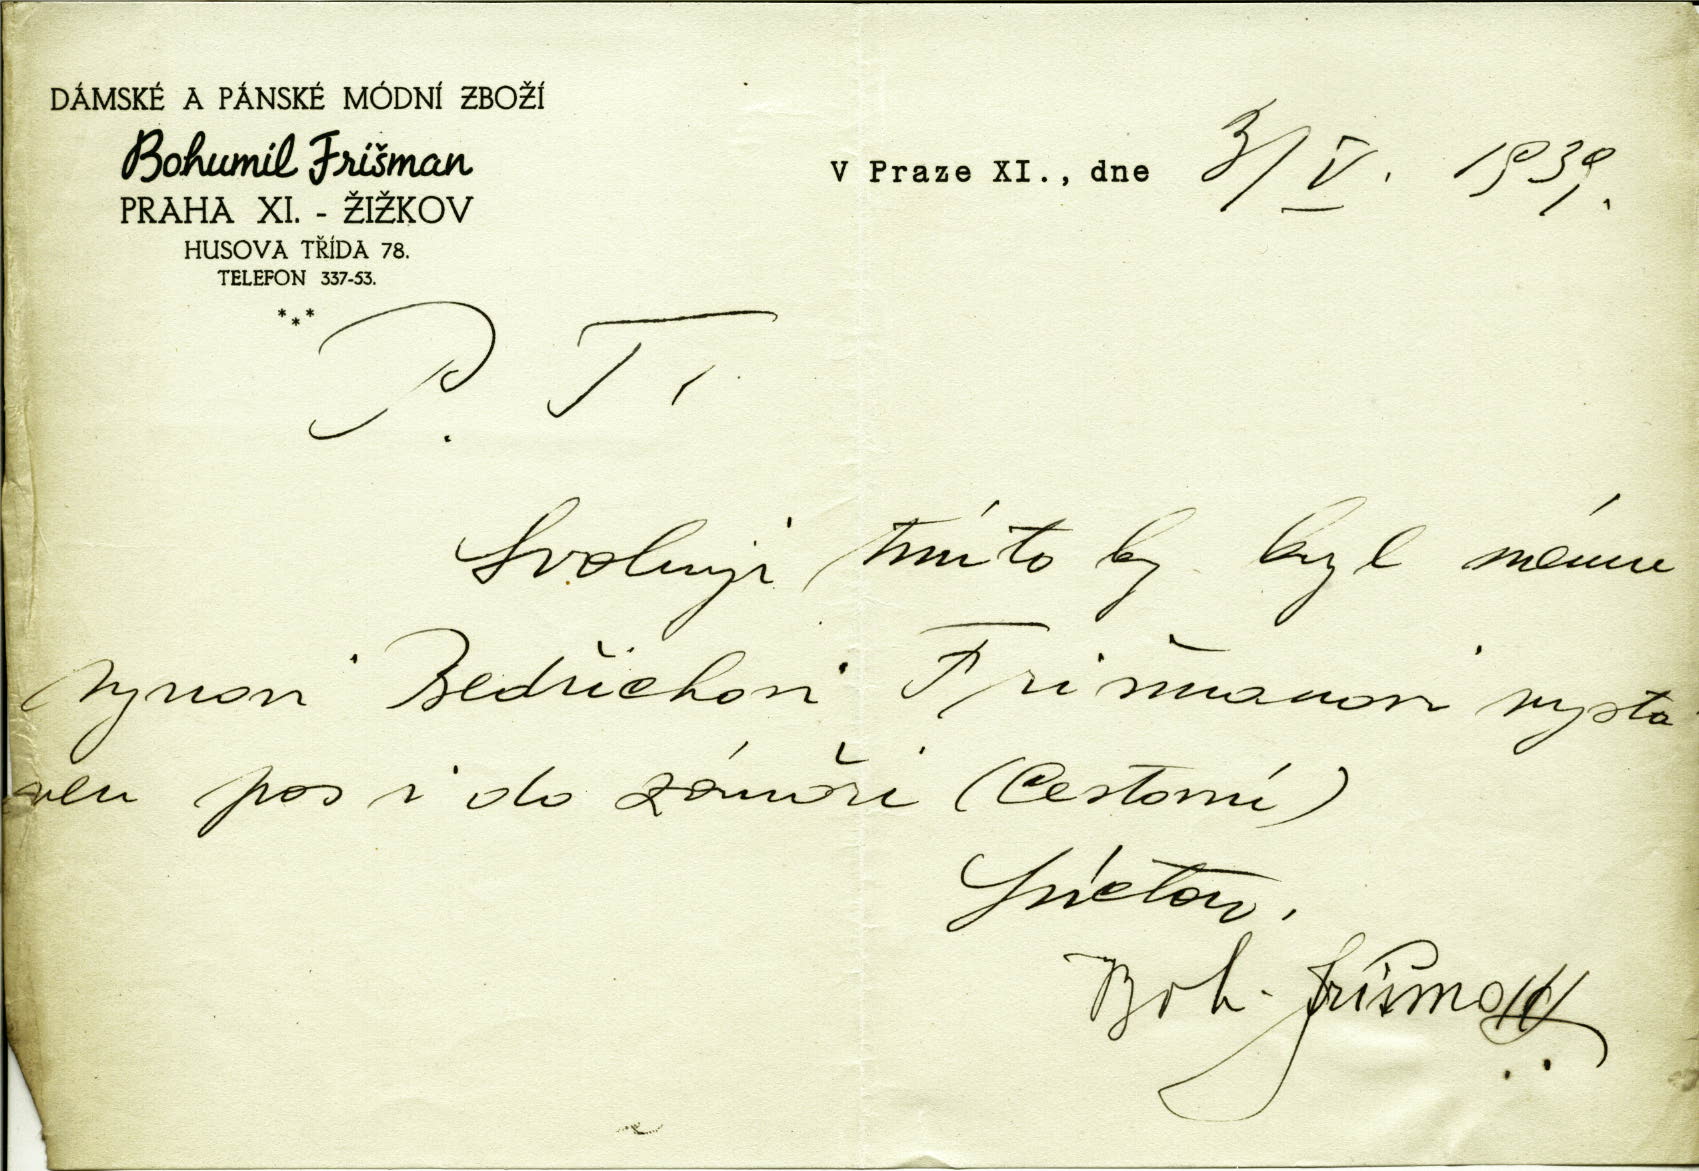 DÁMSKÉ A PÁNSKÉ MÓDNÍ ZBOŽÍ
Bohumil Frišman
PRAHA XI. - ŽIŽKOV
HUSOVA TŘÍDA 78.
TELEFON 337-53.
***
V Praze XI., dne 3/V. 1939.
P. T.
Svoluji tímto by byl mému
synovi Bedřichovi Frišmanovi vysta
ven pas i do zámoří (Cestovní)
S úctou.
Boh. Frišman